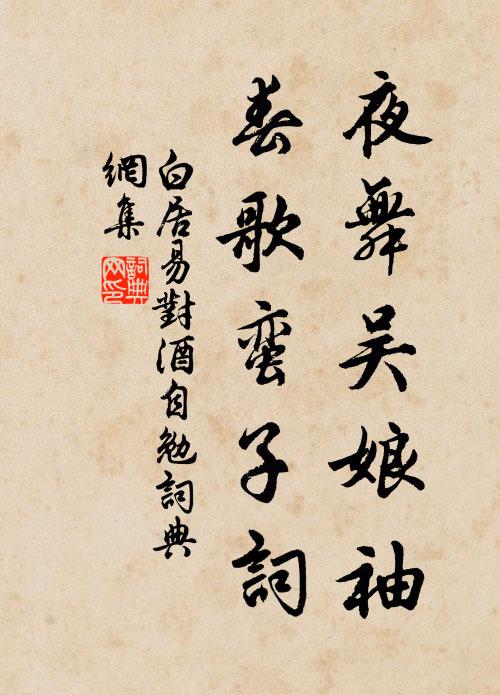 夜舞吴娘袖
春歌蛮子詞
白居易對酒自勉詞典
網集
詞典
网印